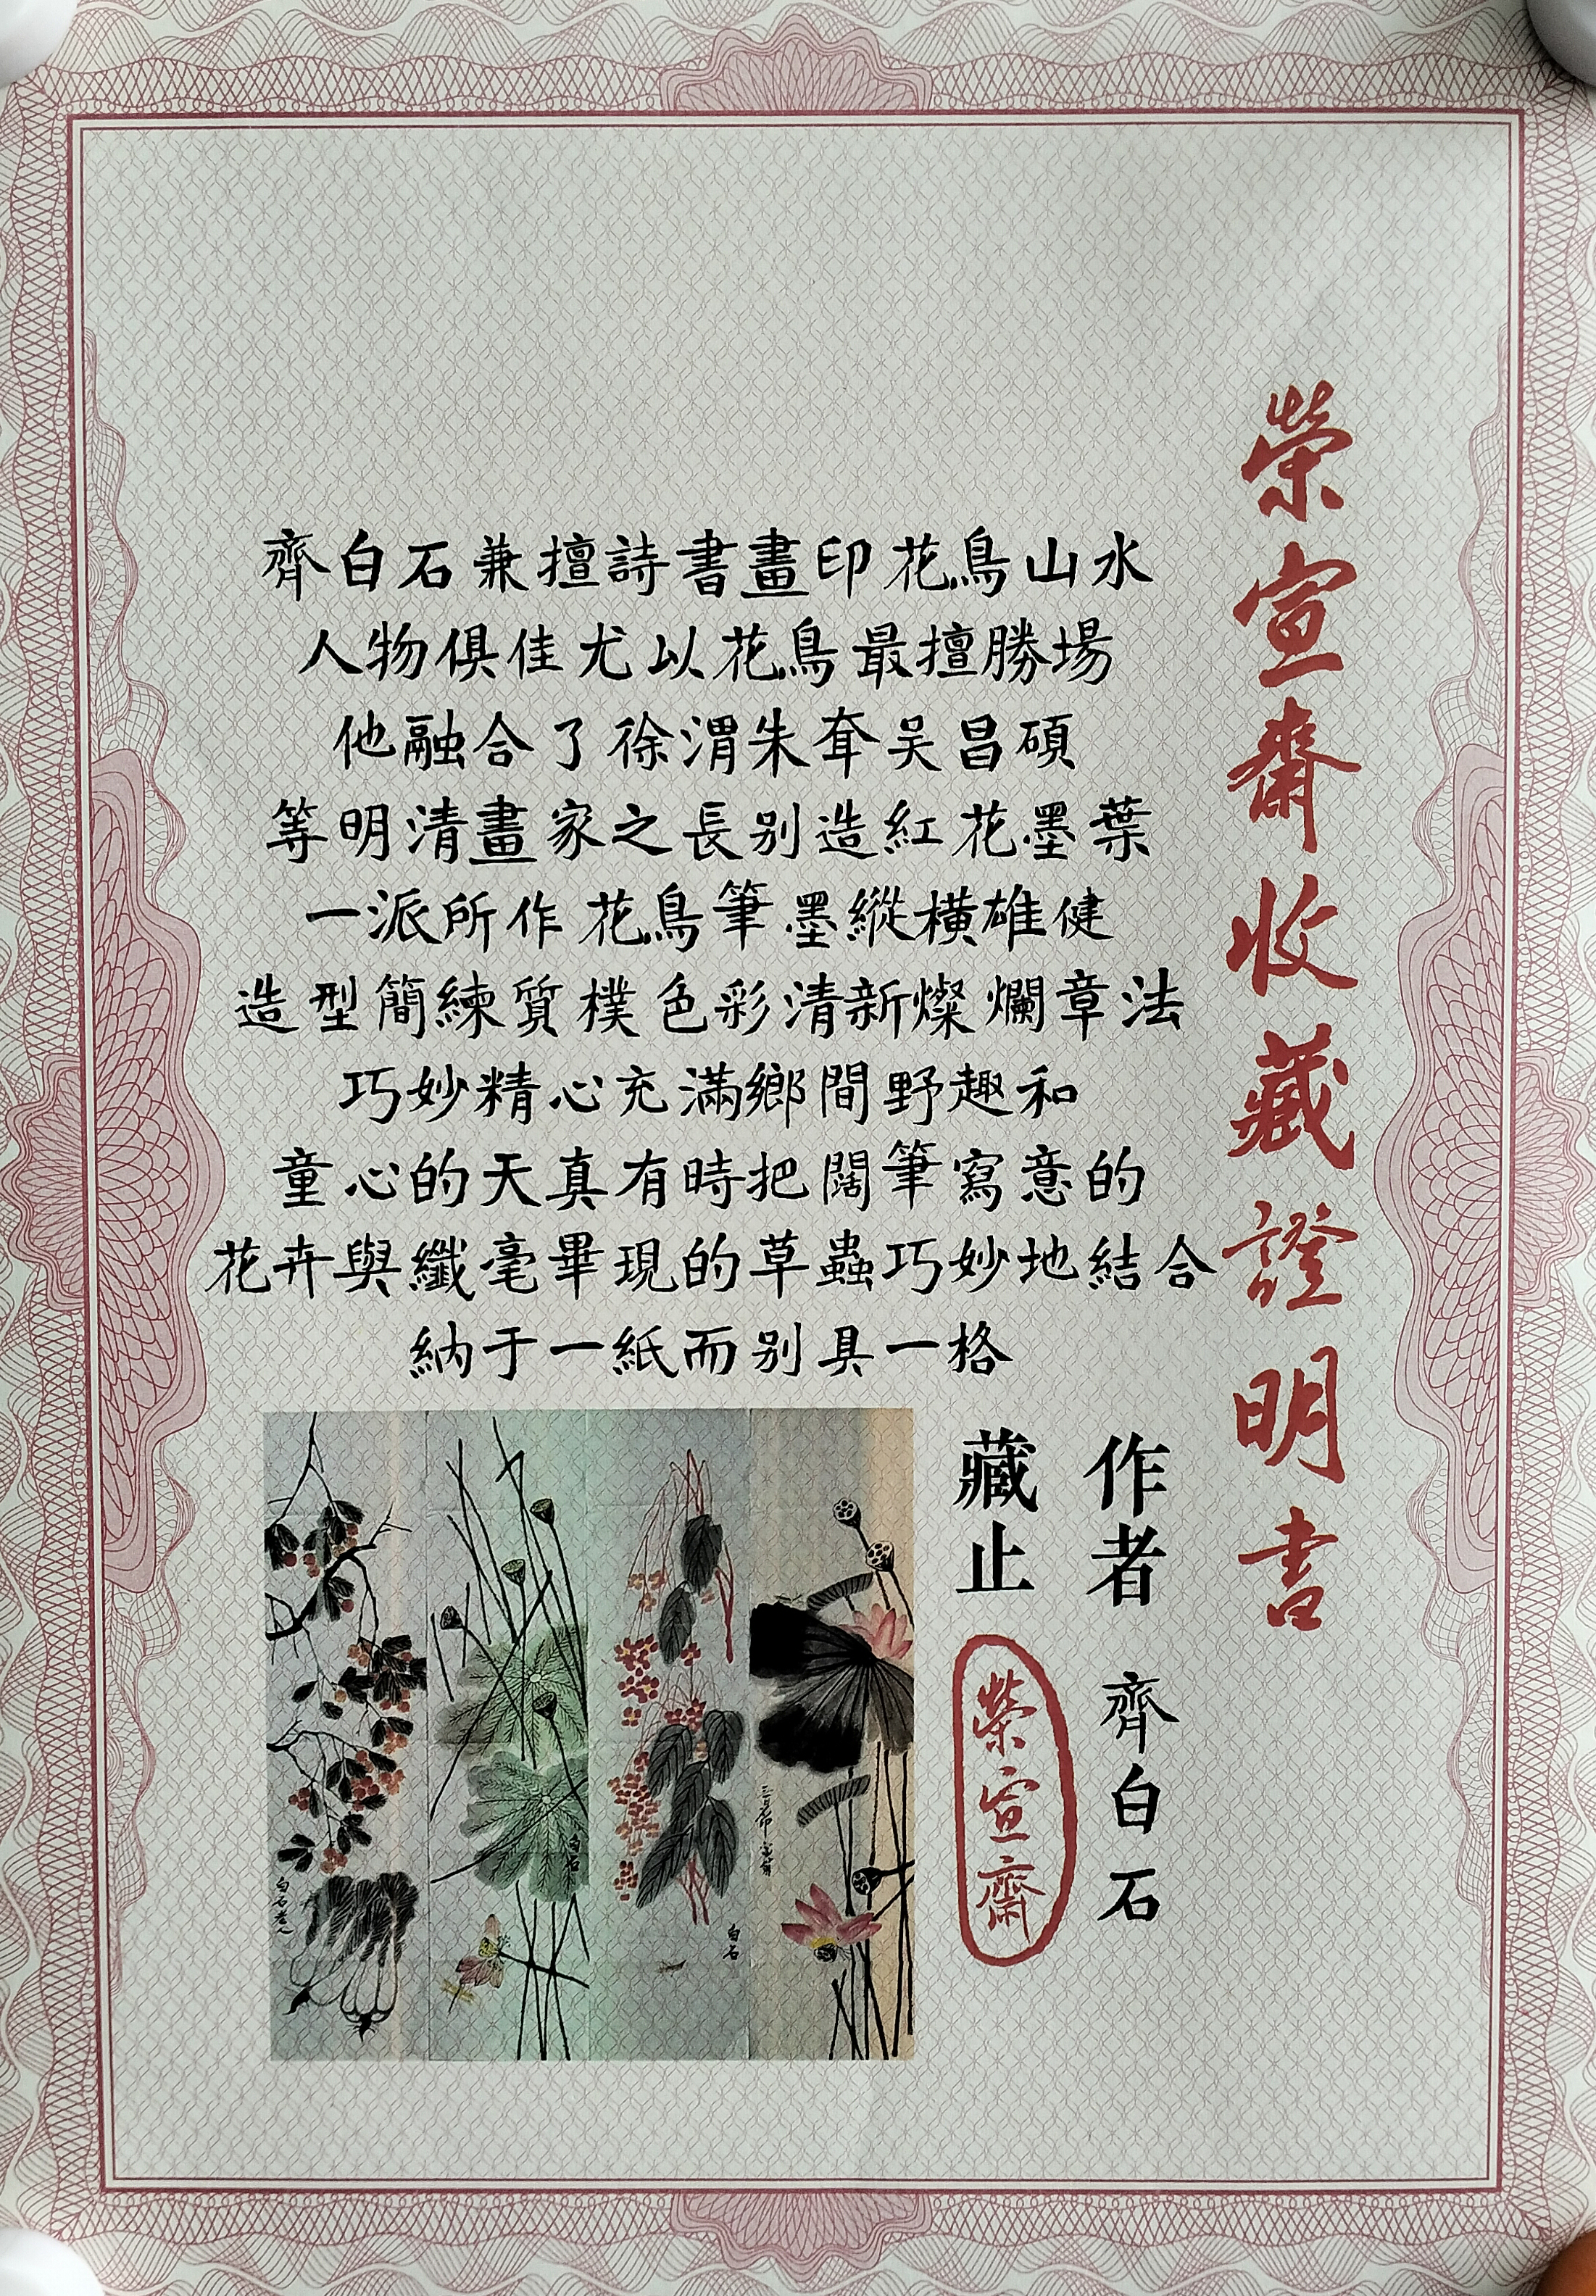 榮宣齋收藏證明書
齊白石兼擅詩書畫印花鳥山水
人物俱佳尤以花鳥最擅勝場
他融合了徐渭朱耷吴昌碩
等明清畫家之長别造紅花墨葉
一派所作花鳥筆墨縱橫雄健
造型簡練質樸色彩清新燦爛章法
巧妙精心充滿鄉間野趣和
童心的天真有時把闊筆寫意的
花卉與纖毫畢現的草蟲巧妙地結合
納于一紙而别具一格
作者 齊白石
藏止 榮宣齋
白石
白石
白石老人